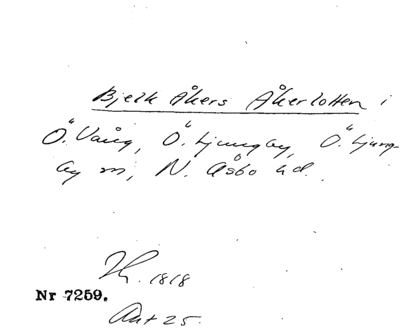 Bjelk Åkers Åkerlotten i
Ö. Vång, Ö. Ljungby, Ö. Ljung-
by m, N. Åsbo hd.
1818
Nr 7259.
Akt 25.